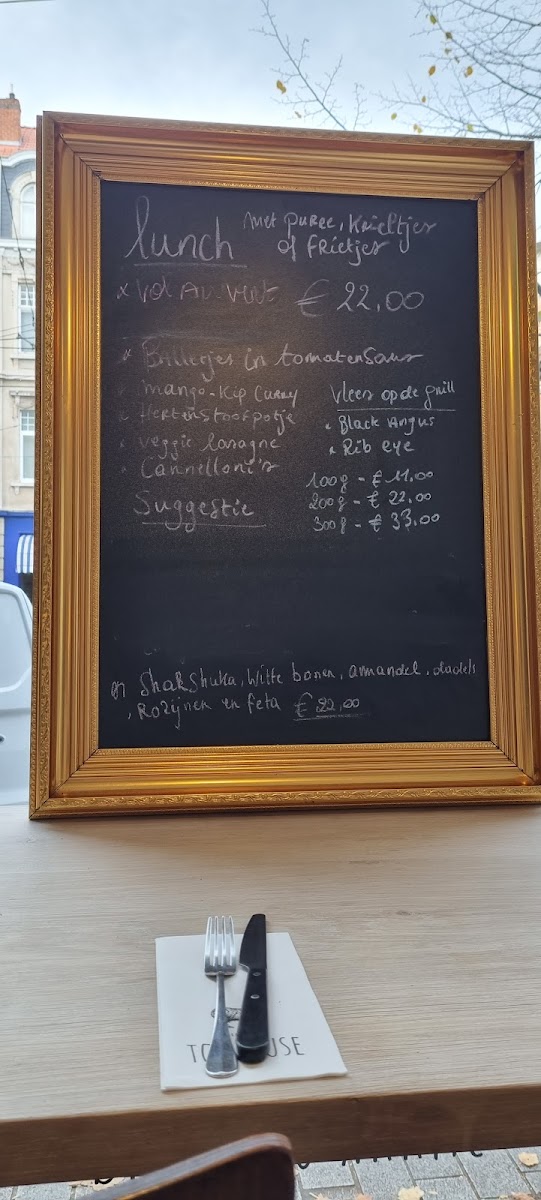 lunch met puree, Krieltjes
of Frietjes
* Vol Au Vent € 22,00
* Balletjes in tomatensaus
* Mango-Kip Curry
* Hertenstoofpotje
* Veggie lasagne
* Cannelloni's
Vlees op de grill
* Black Angus
* Rib eye
100g - € 11,00
200g - € 22,00
300g - € 33,00
Suggestie
Shakshuka, Witte bonen, amandel, dadels
, Rozijnen en feta € 22,00